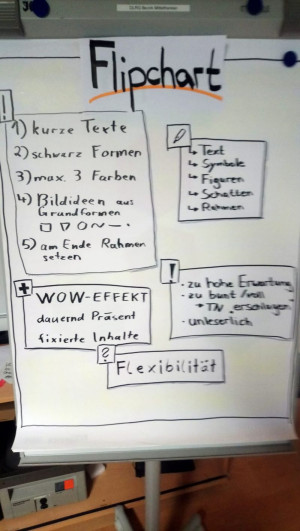 Flipchart
!
1) kurze Texte
2) schwarz Formen
3) max. 3 Farben
4) Bildideen aus
Grundformen
5) am Ende Rahmen
setzen
↳ Text
↳ Symbole
↳ Figuren
↳ Schatten
↳ Rahmen
+
WOW-EFFEKT
dauernd Präsent
fixierte Inhalte
!
- zu hohe Erwartung
- zu bunt/voll
→ TN erschlagen
- unleserlich
?
Flexibilität